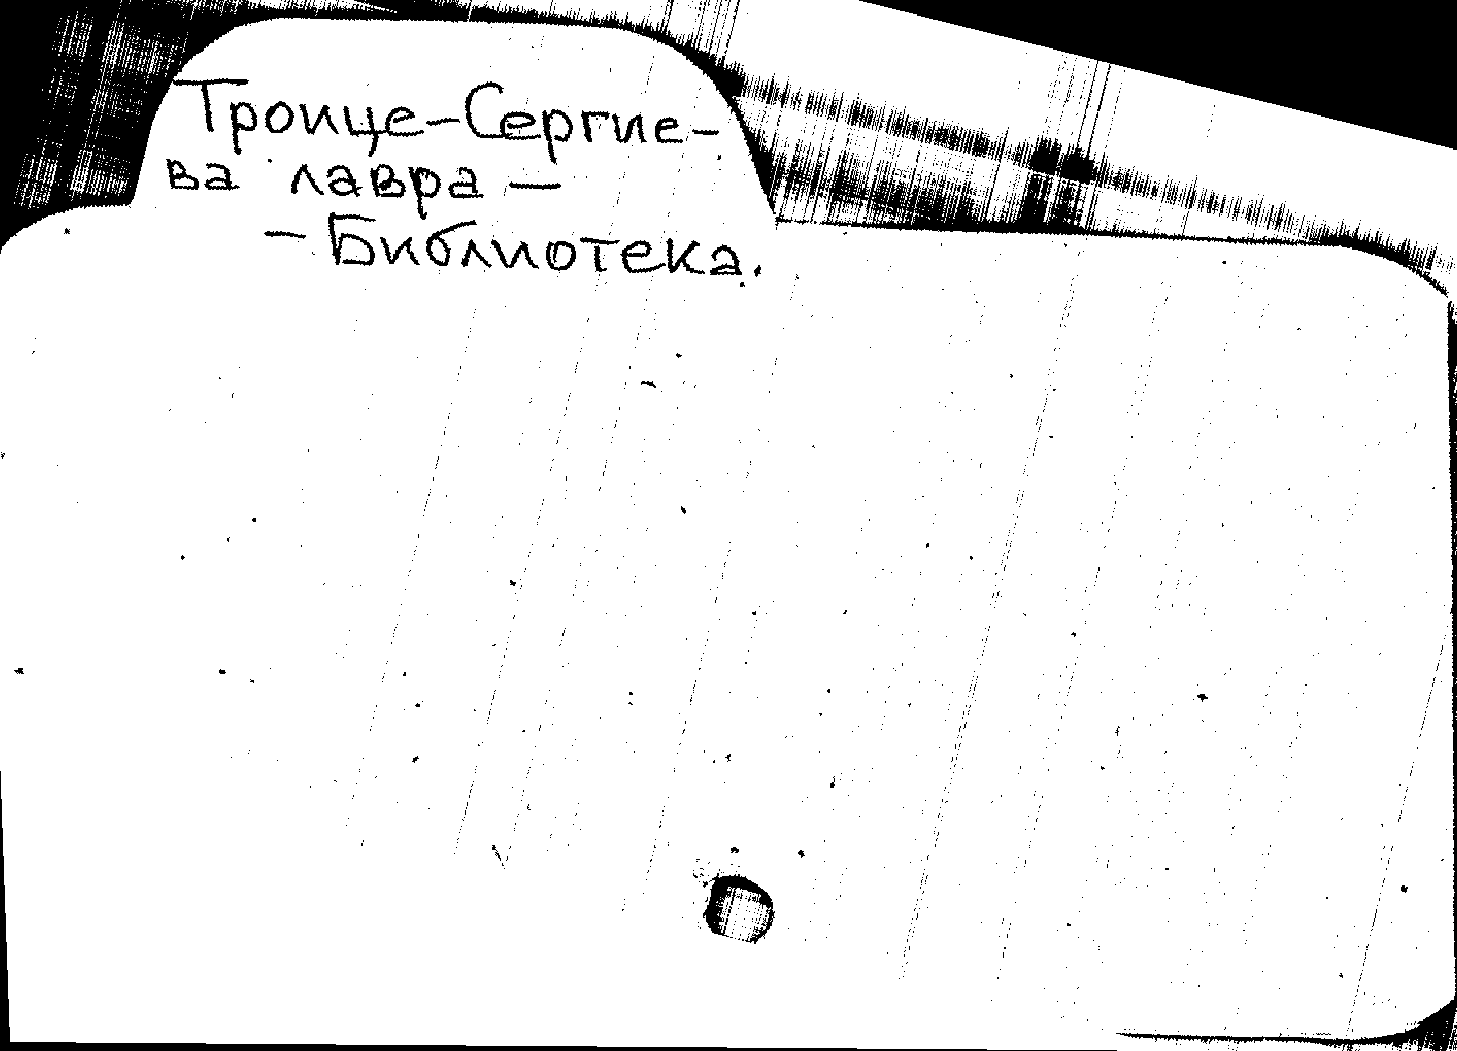 Троице-Сергие-
ва лавра —
— Библиотека.